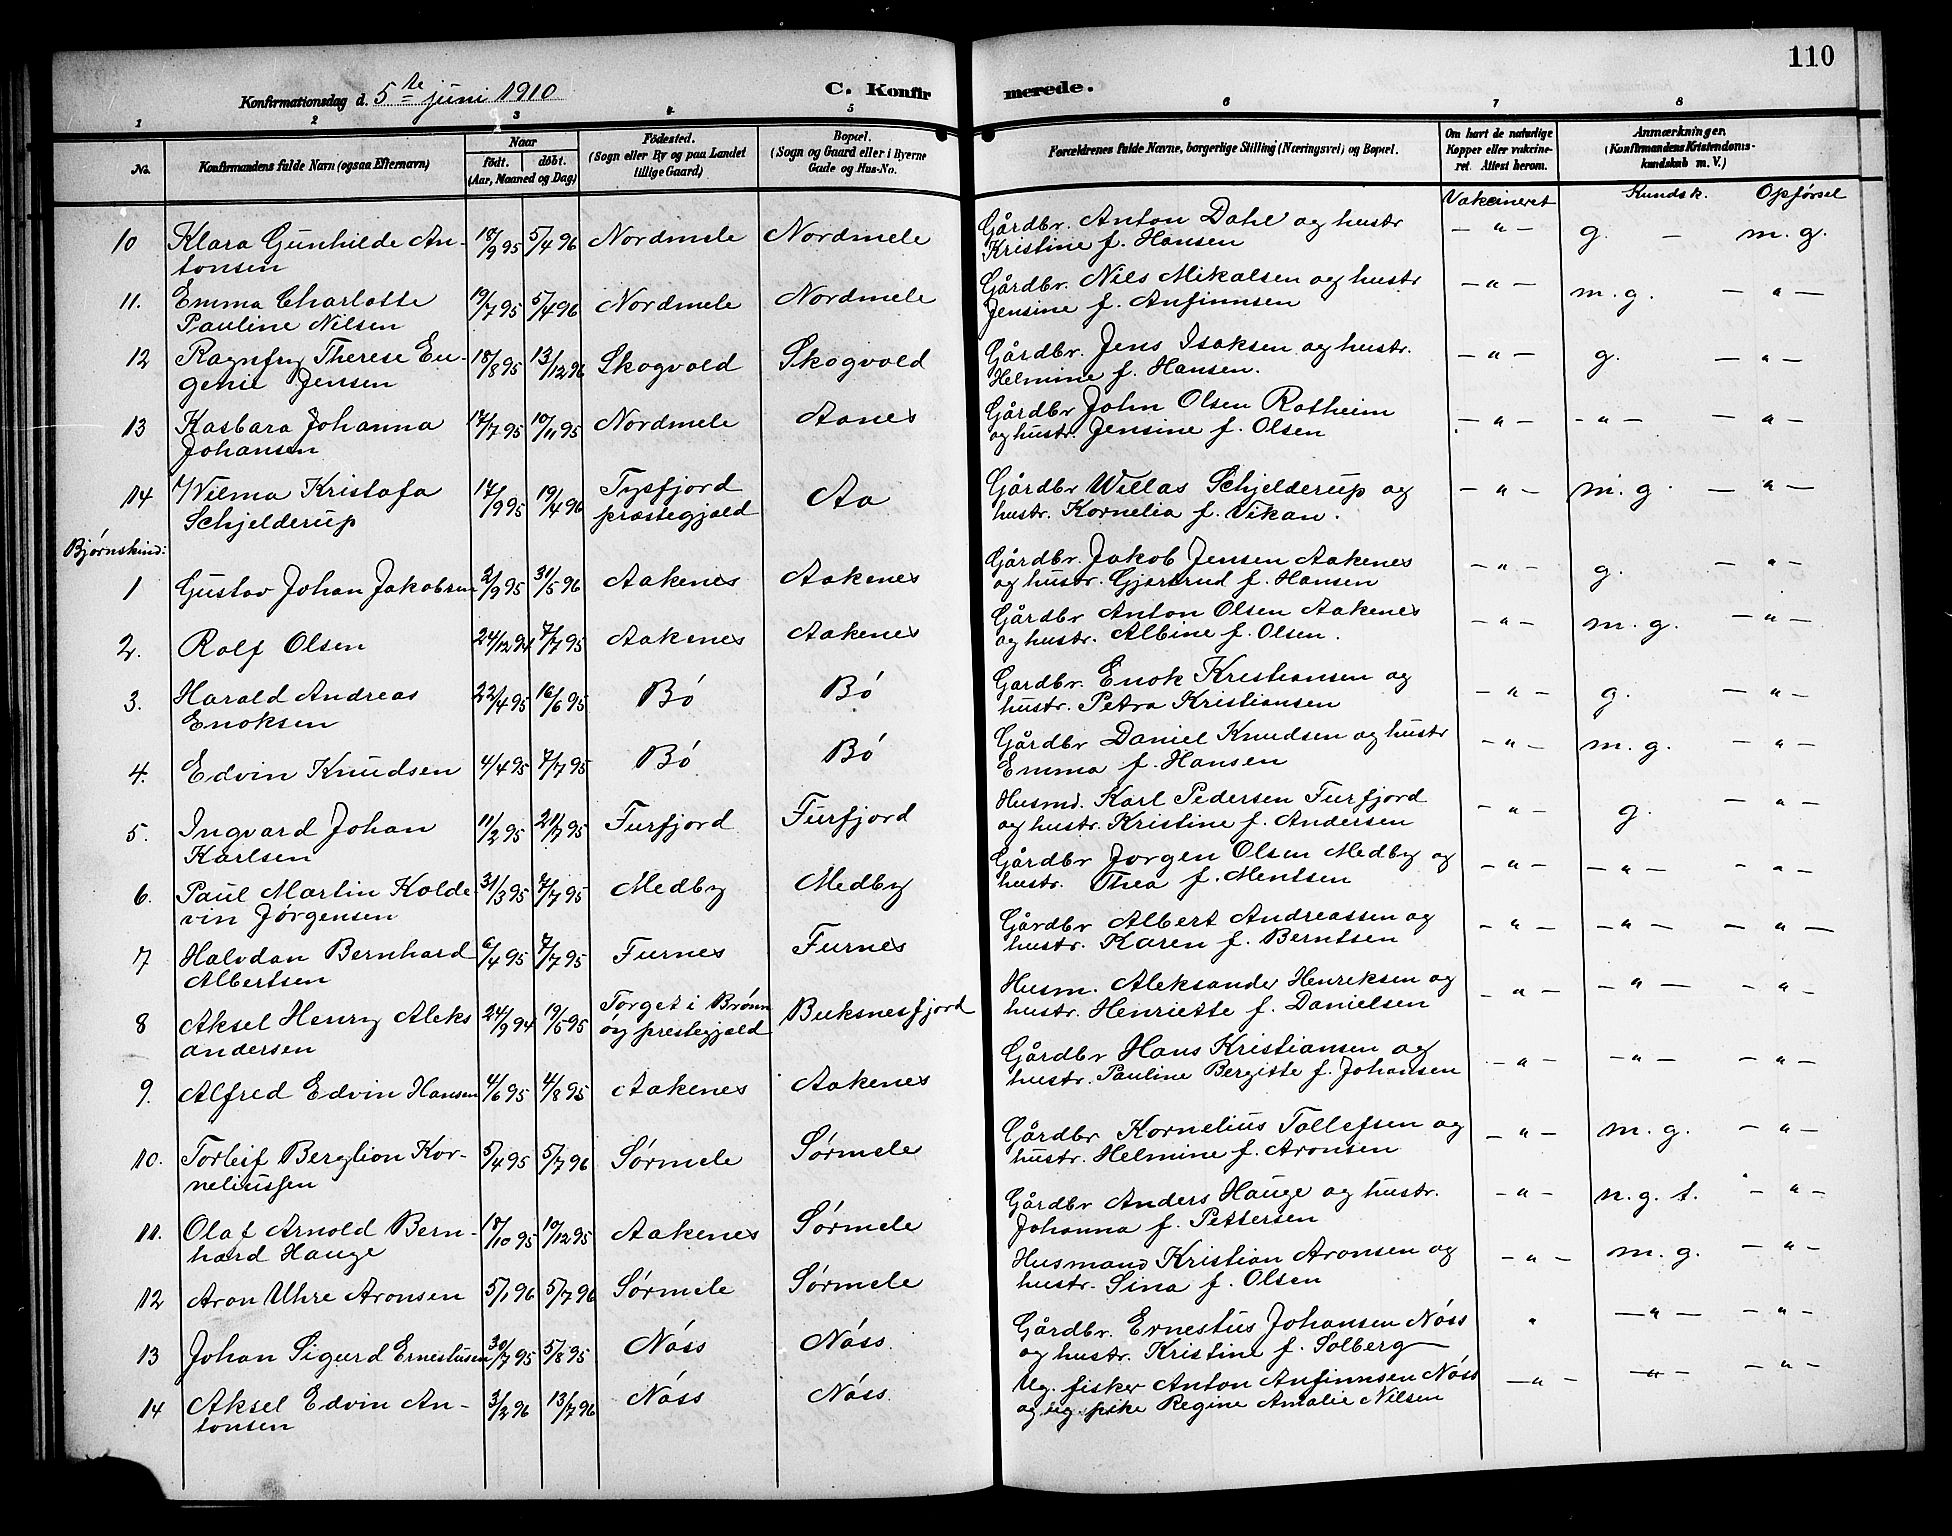 110
Konfirmationsdag d. 5te juni 1910 C. Konfirmerede.
1 2 3 4 5 6 7 8
No. Konfirmandens fulde Navn (ogsaa Efternavn) Naar født. døbt. (Aar, Maaned og Dag) Fødested. (Sogn eller By og paa Landet tillige Gaard) Bopæl. (Sogn og Gaard eller i Byerne Gade og Hus-No. Forældrenes fulde Navne, borgerlige Stilling (Næringsvei) og Bopæl. Om havt de naturlige Kopper eller vakcineret. Attest herom. Anmærkninger. (Konfirmandens Kristendomskundskab m. V.)
Vakcineret Kundsk. Opførsel
10 Klara Gunhilde An- 18/9 95 5/4 96 Nordmele Nordmele Gårdbr. Anton Dahl og hustr — " — g. — m. g.
tonsen Kristine f. Hansen
11. Emma Charlotte 19/7 95 5/4 96 Nordmele Nordmele Gårdbr. Nils Mikalsen og hustr — " — m. g. — " —
Pauline Nilsen Jensine f. Anfinnsen
12 Ragnfry Therese Eu- 18/8 95 13/12 96 Skogvold Skogvold Gårdbr. Jens Isaksen og hustr. — " — g. — " —
genie Jensen Helmine f. Hansen.
13 Kasbara Johanna 17/7 95 10/11 95 Nordmele Aanes Gårdbr John Olsen Rotheim — " — - " — — " —
Johansen og hustr. Jensine f. Olsen
14 Wilma Kristofa 17/9 95 19/4 96 Tysfjord Aa Gårdbr Willas Schjelderup og — " — m. g. — " —
Schjelderup præstegjæld hustr. Kornelia f. Vikan.
Bjørnskind:
1 Gustav Johan Jakobsen 2/9 95 31/5 96 Aakenes Aakenes Gårdbr. Jakob Jensen Aakenes — " — g. — " —
og hustr. Gjertrud f. Hansen
2. Rolf Olsen 24/12 94 7/7 95 Aakenes Aakenes Gårdbr Anton Olsen Aakenes — " — m. g. — " —
og hustr. Albine f. Olsen.
3. Harald Andreas 22/4 95 16/6 95 Bó Bó Gardbr. Enok Kristiansen og — " — g. — " —
Enoksen hustr. Petra Kristiansen
4. Edvin Knudsen 4/4 95 7/7 95 Bó Bó Gårdbr Daniel Knudsen og hustr — " — m. g. — " —
Emma f. Hansen
5. Ingvard Johan 11/2 95 21/7 95 Furfjord Furfjord Husmd. Karl Pedersen Furfjord — " — g. — " —
Karlsen og hustr. Kristine f. Andersen
6. Paul Martin Kolde 31/3 95 7/7 95 Medby Medby Gårdbr Jorgen Olsen Medby og — " — — " — - " —
vin Jørgensen hustr. Thea f. Mentsen
7 Halvdan Bernhard 6/4 95 7/7 95 Furnes Furnes Gårdbr Albert Andreassen og — " — — " — — " —
Albertsen hustr. Karen f. Berntsen
8 Aksel Henry Aleks 24/9 94 19/5 95 Torget i Brønn Buksnesfjord Husm. Aleksander Henriksen og — " — — " — — " —
andersen øy prestegjæld hustr. Henriette f. Danielsen
9. Alfred Edvin Hansen 4/6 95 4/8 95 Aakenes Aakenes Gårdbr Hans Kristiansen og — " — — " — — " —
hustr. Pauline Bergitte f. Johansen
10. Torleif Berglion Kor- 5/4 95 5/7 96 Sørmele Sørmele Gårdbr Kornelius Tollefsen og — " — m. g. — " —
neliussen hustr. Helmine f. Aronsen
11. Olaf Arnold Bern- 18/10 95 10/12 95 Aakenes Sørmele Gårdbr Anders Hauge og hustr. — " — n. g. t. — " —
hard Hauge Johanna f. Pettersen
12 Aron Uhre Aronsen 5/1 96 5/7 96 Sørmele Sørmele Husmand Kristian Aronsen og — " — m. g. — " —
hustr. Sina f. Olsen
13 Johan Sigurd Ernestusen 30/7 95 5/8 95 Nóss Nóss. Gårdbr. Ernestus Johansen Nóss " — " — — " —
og hustr. Kristine f. Solberg
14 Aksel Edvin An- 3/2 96 13/7 96 Nóss Nóss. Ug. fisker Anton Anfinnsen Nóss — " — — " — — " —
tonsen og ug. pike Regine Amalie Nilsen